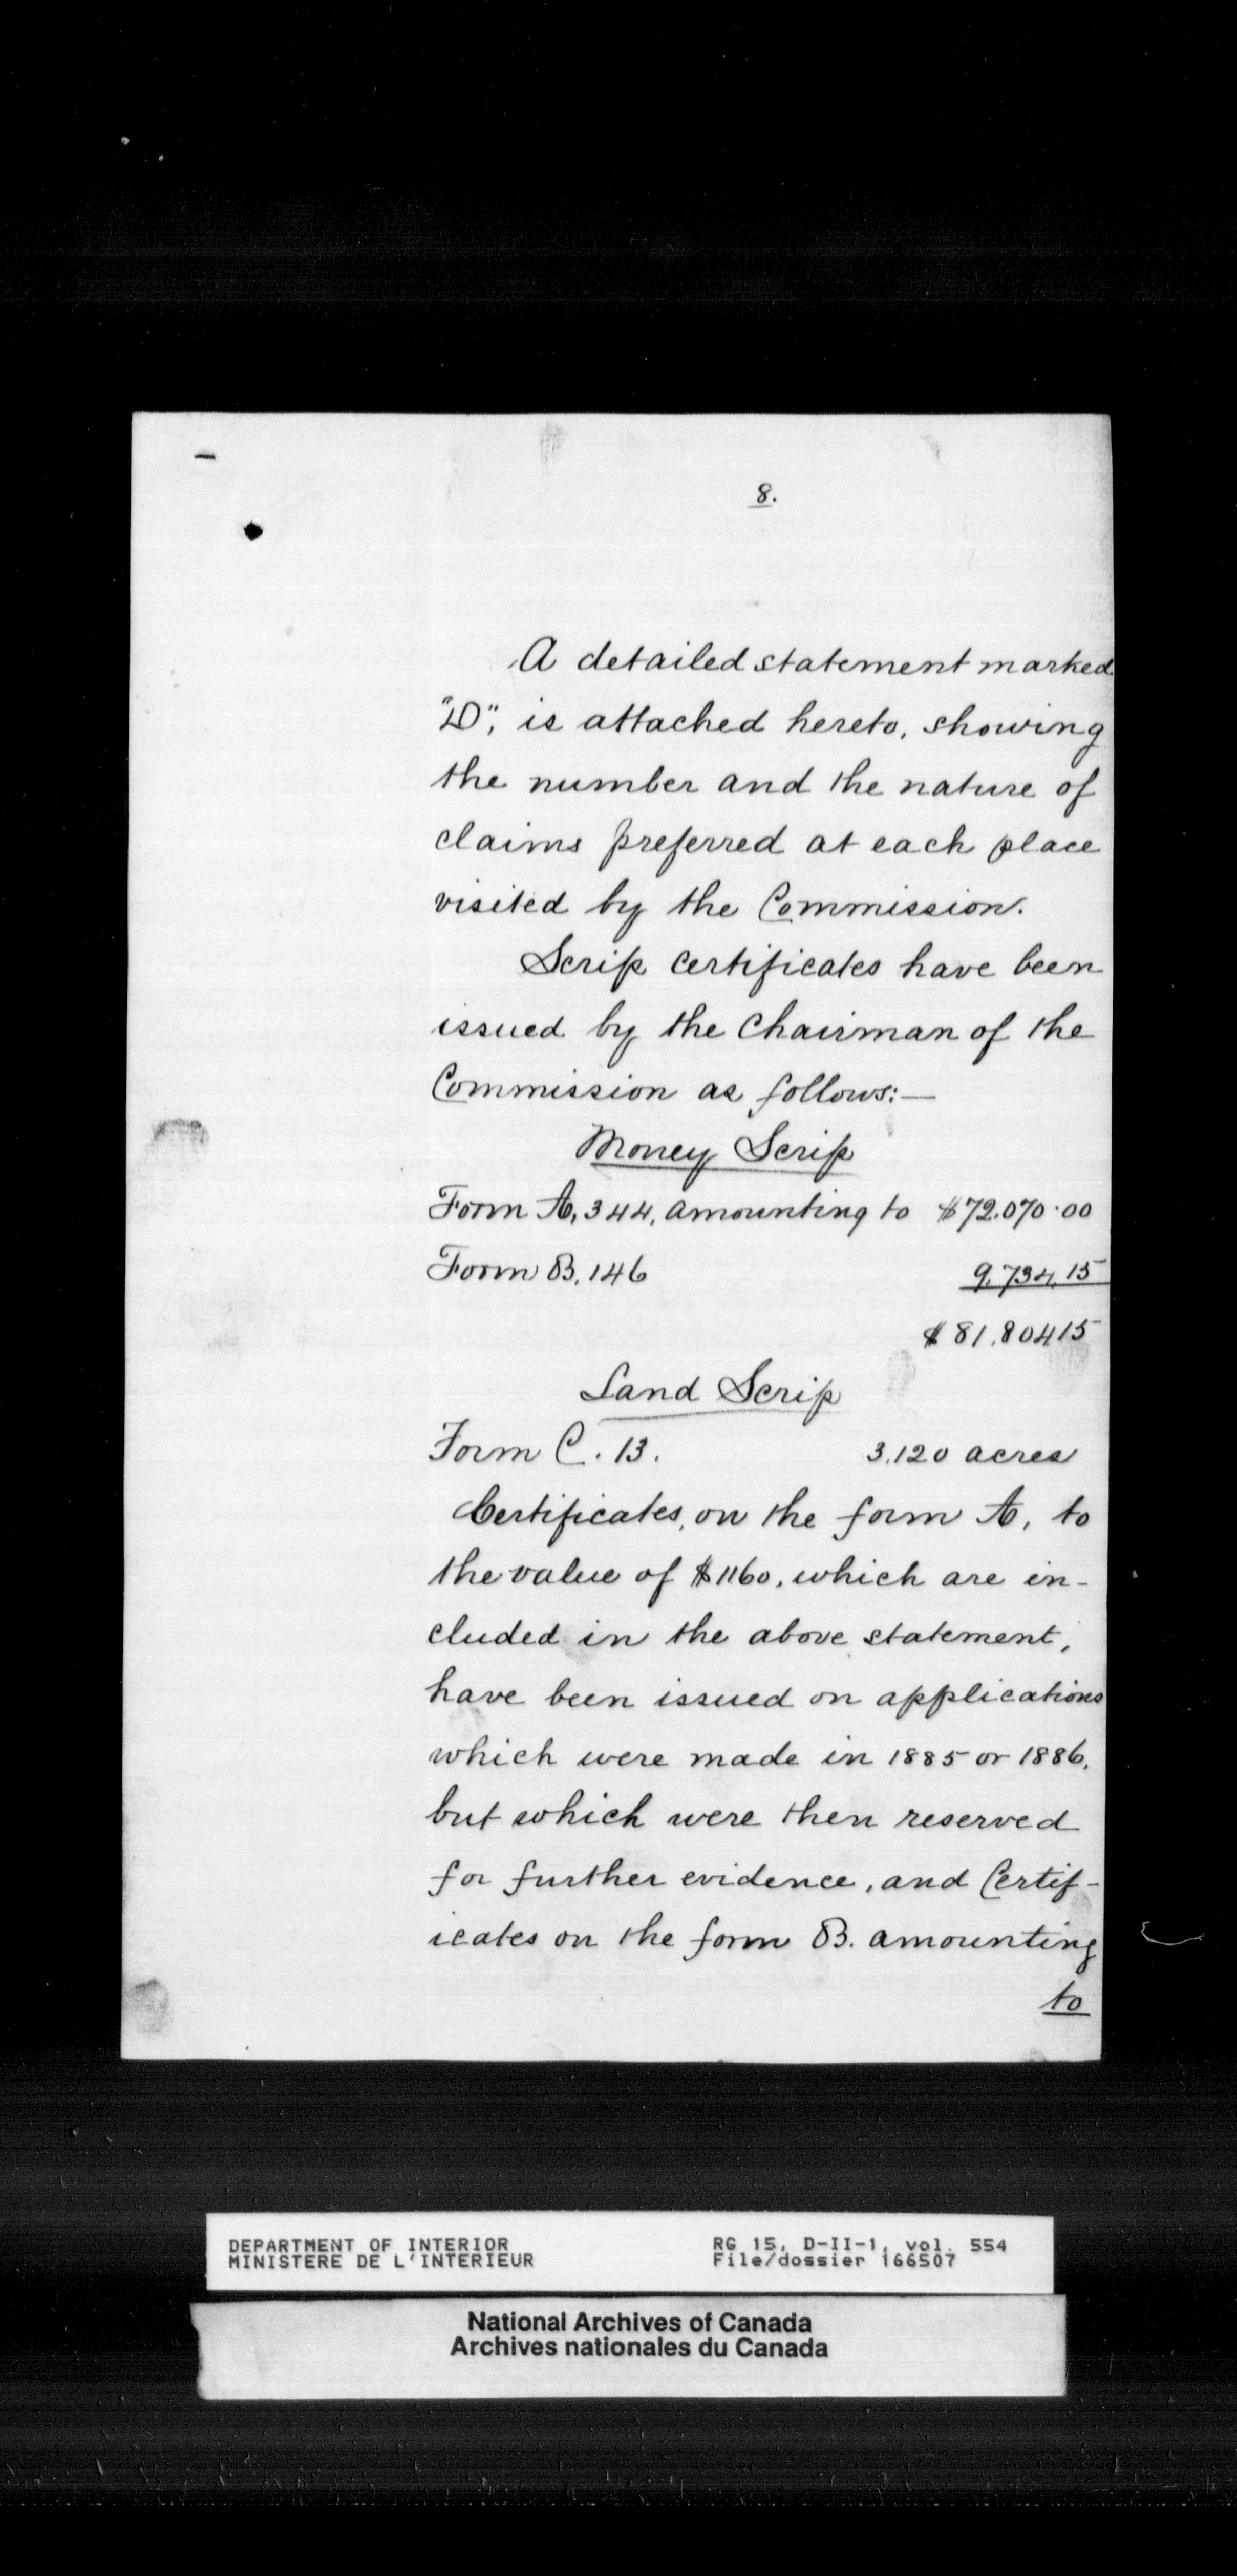 8.
A detailed statement marked
"D", is attached hereto, showing
the number and the nature of
claims preferred at each place
visited by the Commission.
Scrip certificates have been
issued by the Chairman of the
Commission as follows:—
Money Scrip
Form A, 344, amounting to $72.070.00
Form B. 146 9,734.15
$81.804.15
Land Scrip
Form C. 13. 3.120 acres
Certificates, on the form A, to
the value of $1160, which are in-
cluded in the above statement,
have been issued on applications
which were made in 1885 or 1886,
but which were then reserved
for further evidence, and Certif-
icates on the form B. amounting
to
DEPARTMENT OF INTERIOR RG 15, D-II-1, vol. 554
MINISTERE DE L'INTERIEUR File/dossier 166507
National Archives of Canada
Archives nationales du Canada